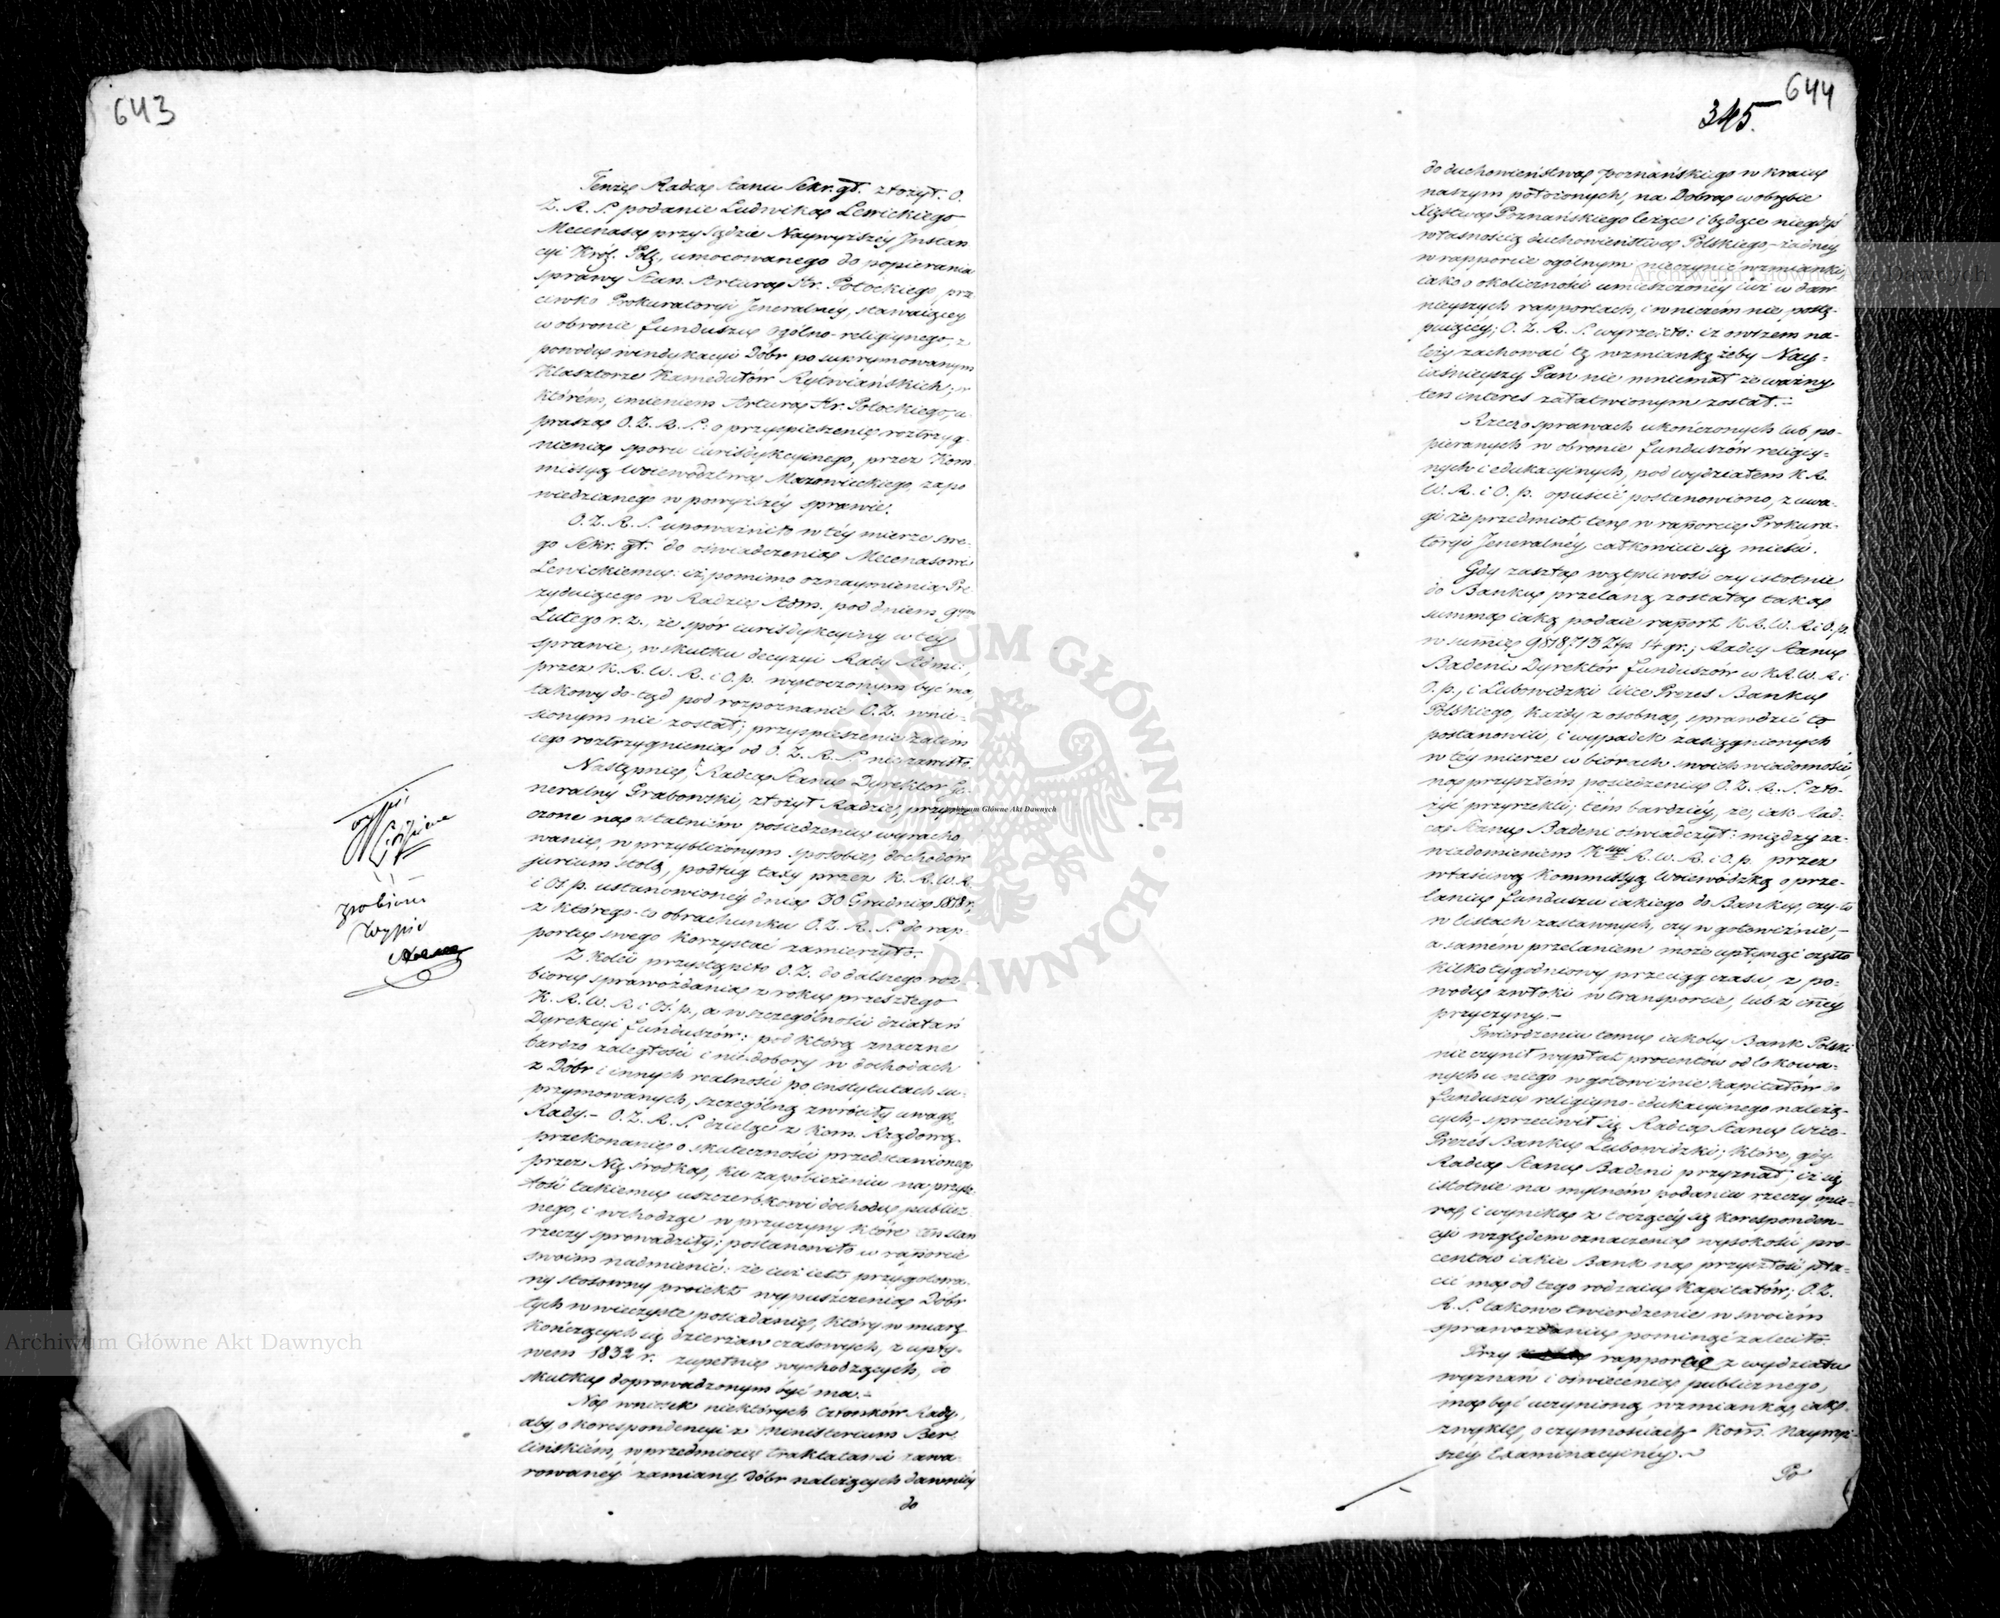 643
Tenże Radca Stanu Sekr. gł. złożył O.
Z. R. S. podanie Ludwika Lewickiego
Mecenasa przy Sądzie Naywyższéy Instan
cyi Król. Pols. umocowanego do popierania
sprawy Stan. Artura Hr. Potockiego prze
ciwko Prokuratoryi Jeneralnéy, stawaiącey
w obronie funduszu ogólno-religiynego, z
powodu windykacyi Dóbr po suprymowanym
Klasztorze Kamedułów Rytwiańskich; w
którém, imieniem Artura Hr. Potockiego, u-
prasza O. Z. R. S. o przyspieszenie roztrzyg-
nienia sporu iurisdykcyinego, przez Kom-
missyą Woiewództwa Mazowieckiego, zapo
wiedzianego w powyższéy sprawie.
O. Z. R. S. upoważniło w téy mierze swe-
go Sekr. gł. do oświadczenia Mecenasowi
Lewickiemu: iż, pomimo oznaymienia Pre-
zyduiącego w Radzie Adm. pod dniem 9ym
Lutego r. z., że spór iurisdykcyiny w téy
sprawie, w skutku decyzyi Rady Admi:
przez K. R. W. R. i O. p. wytoczonym być ma,
takowy do-tąd pod rozpoznanie O. Z. wnie-
sionym nie został; przyspieszenie zatém
iego roztrzygnienia od O. Z. R. S. nie zawisło.
Następnie, Radca Stanu Dyrektor Je-
neralny Grabowski, złożył Radzie, przyrze
czone na ostatniém posiedzeniu wyracho
wanie, w przybliżonym sposobie, dochodów
jurium stolæ, podług taxy przez K. R. W. R.
i Oś. p. ustanowionéy dnia 30 Grudnia 1818 r,
z którego-to obrachunku O. Z. R. S. do rap-
portu swego korzystać zamierzyło.
Z kolei przystąpiło O. Z. do dalszego roz-
bioru sprawozdania z roku przeszłego
K. R. W. R. i Oś. p., a w szczególności działań
Dyrekcyi funduszów: pod którą znaczne
bardzo zaległości i niedobory w dochodach
z Dóbr i innych realności po instytutach su-
prymowanych, szczególną zwróciły uwagę
Rady. – O. Z. R. S. dzieląc z Kom. Rządową
przekonanie o skuteczności przedstawionego
przez Nię środka, ku zapobieżeniu na przysz-
łość takiemu uszczerbkowi dochodu publicz-
nego, i wchodząc w przyczyny które ten stan
rzeczy sprowadziły; postanowiło w raporcie
swoim nadmienić: że iuż iest przygotowa-
ny stosowny proiekt wypuszczenia Dóbr
tych w wieczyste posiadanie, który w miarę
kończących się dzierżaw czasowych, z upły-
wem 1832 r. zupełnie wychodzących, do
skutku doprowadzonym być ma. –
Na wniosek niektórych Członków Rady,
aby, o korespondencyi z Ministerium Ber-
lińskiém, w przedmiocie traktatami zawa-
rowanéy zamiany dóbr należących dawniéy
do
zrobiono
Wypis
644
345.
do duchowieństwa poznańskiego w kraiu
naszym położonych, na Dobra w obrębie
Xięstwa Poznańskiego leżące i będące niegdyś
własnością duchowieństwa Polskiego, – żadnéy
w rapporcie ogólnym nie czynić wzmianki,
iako o okoliczności umieszczonéy iuż w daw-
nieyszych rapportach, i w niczém nie postę-
puiącéy; O. Z. R. S. wyrzekło: iż owszem na-
leży zachować tę wzmiankę żeby Nay-
iaśnieyszy Pan nie mniemał że ważny
ten interes załatwionym został. –
Rzecz o sprawach ukończonych lub po-
pieranych w obronie funduszów religiy-
nych i edukacyinych, pod wydziałem K. R.
W. R. i O. p. opuścić postanowiono, z uwa-
gi że przedmiot ten w raporcie Prokura-
toryi Jeneralnéy całkowicie się mieści.
Gdy zaszła wątpliwość czy istotnie
do Banku przelaną została taka
summa iaką podaie raport K. R. W. R. i O. p.
w summie 9818,713 Złp. 14 gr.; Radcy Stanu
Badeni Dyrektór funduszów w K. R. W. R. i
O. p., i Lubowidzki Vice Prezes Banku
Polskiego, każdy z osobna, sprawdzić to
postanowili, i wypadek zasiągnionych
w téy mierze w biórach swoich wiadomości
na przyszłém posiedzeniu O. Z. R. S. zło-
żyć przyrzekli; tém bardziéy, że, iak Rad-
ca Stanu Badeni oświadczył: między za-
wiadomieniem Kssyi R. W. R. i O. p. przez
właściwą Kommissyą Woiewódzką o prze-
laniu funduszu iakiego do Banku, czy-to
w listach zastawnych, czy w gotowiźnie, –
a samém przelaniem może upłynąć często
kilkotygodniowy przeciąg czasu, z po-
wodu zwłoki w transporcie, lub z innéy
przyczyny. –
Twierdzeniu temu iakoby Bank Polski
nie czynił wypłat procentów od lokowa-
nych u niego w gotowiźnie kapitałów do
funduszu religiyno-edukacyinego należą-
cych, – sprzeciwił się Radca Stanu Vice-
Prezes Banku Lubowidzki; które, gdy
Radca Stanu Badeni przyznał, iż się
istotnie na mylném podaniu rzeczy opie-
ra, i wynika z toczącéy się korespondén-
cyi względem oznaczenia wysokości pro-
centów iakie Bank na przyszłość pła-
cić ma od tego rodzaiu Kapitałów; O. Z.
R. S. takowe twierdzenie w swoiém
sprawozdaniu pominąć zaleciło.
Przy rapporcie z wydziału
wyznań i oświecenia publicznego,
ma być uczynioną wzmianka, iak
zwykle, o czynnościach Kom. Naywyż-
széy Examinacyinéy. –
Po
Archiwum Główne Akt Dawnych
Archiwum Główne Akt Dawnych
Archiwum Główne Akt Dawnych
ARCHIWUM GŁÓWNE AKT DAWNYCH